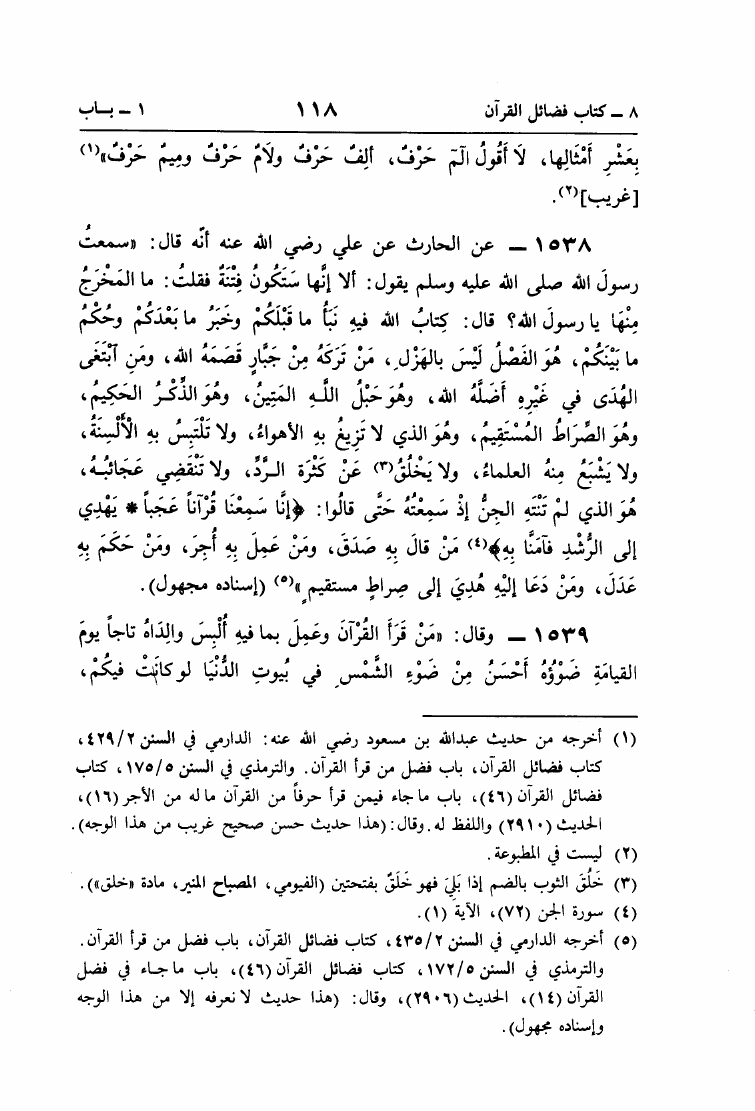 ٨ ـ كتاب فضائل القرآن ١١٨ ١ ـ بـاب
بِعَشْرِ أَمْثَالِها، لَا أَقُولُ الٓمٓ حَرْفٌ، أَلِفٌ حَرْفٌ ولَامٌ حَرْفٌ ومِيمٌ حَرْفٌ»(١)
[غريب](٢).
١٥٣٨ ـ عن الحارث عن علي رضي الله عنه أنّه قال: «سمعتُ
رسولَ الله صلى الله عليه وسلم يقول: ألا إنَّها سَتَكُونُ فِتْنَةٌ فقلتُ: ما المَخْرَجُ
مِنْهَا يا رسولَ الله؟ قال: كِتابُ الله فيهِ نَبَأُ ما قَبْلَكُمْ وخَبَرُ ما بَعْدَكُمْ وحُكْمُ
ما بَيْنَكُمْ، هُوَ الفَصْلُ لَيْسَ بالهَزْلِ، مَنْ تَرَكَهُ مِنْ جَبَّارٍ قَصَمَهُ الله، ومَنِ آبْتَغَى
الهُدَى في غَيْرِهِ أضَلَّهُ الله، وهُوَ حَبْلُ اللَّـهِ المَتِينُ، وهُوَ الذِّكْـرُ الحَكِيمُ،
وهُوَ الصِّرَاطُ المُسْتَقِيمُ، وهُوَ الذي لا تَزِيغُ بهِ الأهواءُ، ولا تَلْتَبِسُ بهِ الأَلْسِنَةُ،
ولا يَشْبَعُ مِنْهُ العلماءُ، ولا يَخْلُقُ(٣) عَنْ كَثْرَةِ الـرَّدِّ، ولا تَنْقَضِي عَجَائبُـهُ،
هُوَ الذي لمْ تَنْتَهِ الجِنُّ إذْ سَمِعْتُهُ حَتَّى قالُوا: ﴿إنَّا سَمِعْنَا قُرْآناً عَجَباً * يَهْدِي
إلى الرُّشْدِ فآمَنَّا بِهِ﴾(٤) مَنْ قالَ بِهِ صَدَقَ، ومَنْ عَمِلَ بِهِ أُجِرَ، ومَنْ حَكَمَ بِهِ
عَدَلَ، ومَنْ دَعَا إلَيْهِ هُدِيَ إلى صِراطٍ مستقيمٍ»(٥) (إسناده مجهول).
١٥٣٩ ـ وقال: «مَنْ قَرَأَ القُرْآنَ وعَمِلَ بما فيهِ أُلْبِسَ والِدَاهُ تاجاً يومَ
القيامَةِ ضَوْؤُهُ أحْسَنُ مِنْ ضَوْءِ الشَّمْسِ في بُيوتِ الدُّنْيَا لو كانَتْ فيكُمْ،
(١) أخرجه من حديث عبدالله بن مسعود رضي الله عنه: الدارمي في السنن ٤٢٩/٢،
كتاب فضائل القرآن، باب فضل من قرأ القرآن. والترمذي في السنن ١٧٥/٥، كتاب
فضائل القرآن (٤٦)، باب ما جاء فيمن قرأ حرفاً من القرآن ماله من الأجر (١٦)،
الحديث (٢٩١٠) واللفظ له. وقال: (هذا حديث حسن صحيح غريب من هذا الوجه).
(٢) ليست في المطبوعة.
(٣) خَلُقَ الثوب بالضم إذا بَلِيَ فهو خَلَقٌ بفتحتين (الفيومي، المصباح المنير، مادة «خلق»).
(٤) سورة الجن (٧٢)، الآية (١).
(٥) أخرجه الدارمي في السنن ٤٣٥/٢، كتاب فضائل القرآن، باب فضل من قرأ القرآن.
والترمذي في السنن ١٧٢/٥، كتاب فضائل القرآن (٤٦)، باب ما جاء في فضل
القرآن (١٤)، الحديث (٢٩٠٦)، وقال: (هذا حديث لا نعرفه إلا من هذا الوجه
وإسناده مجهول).